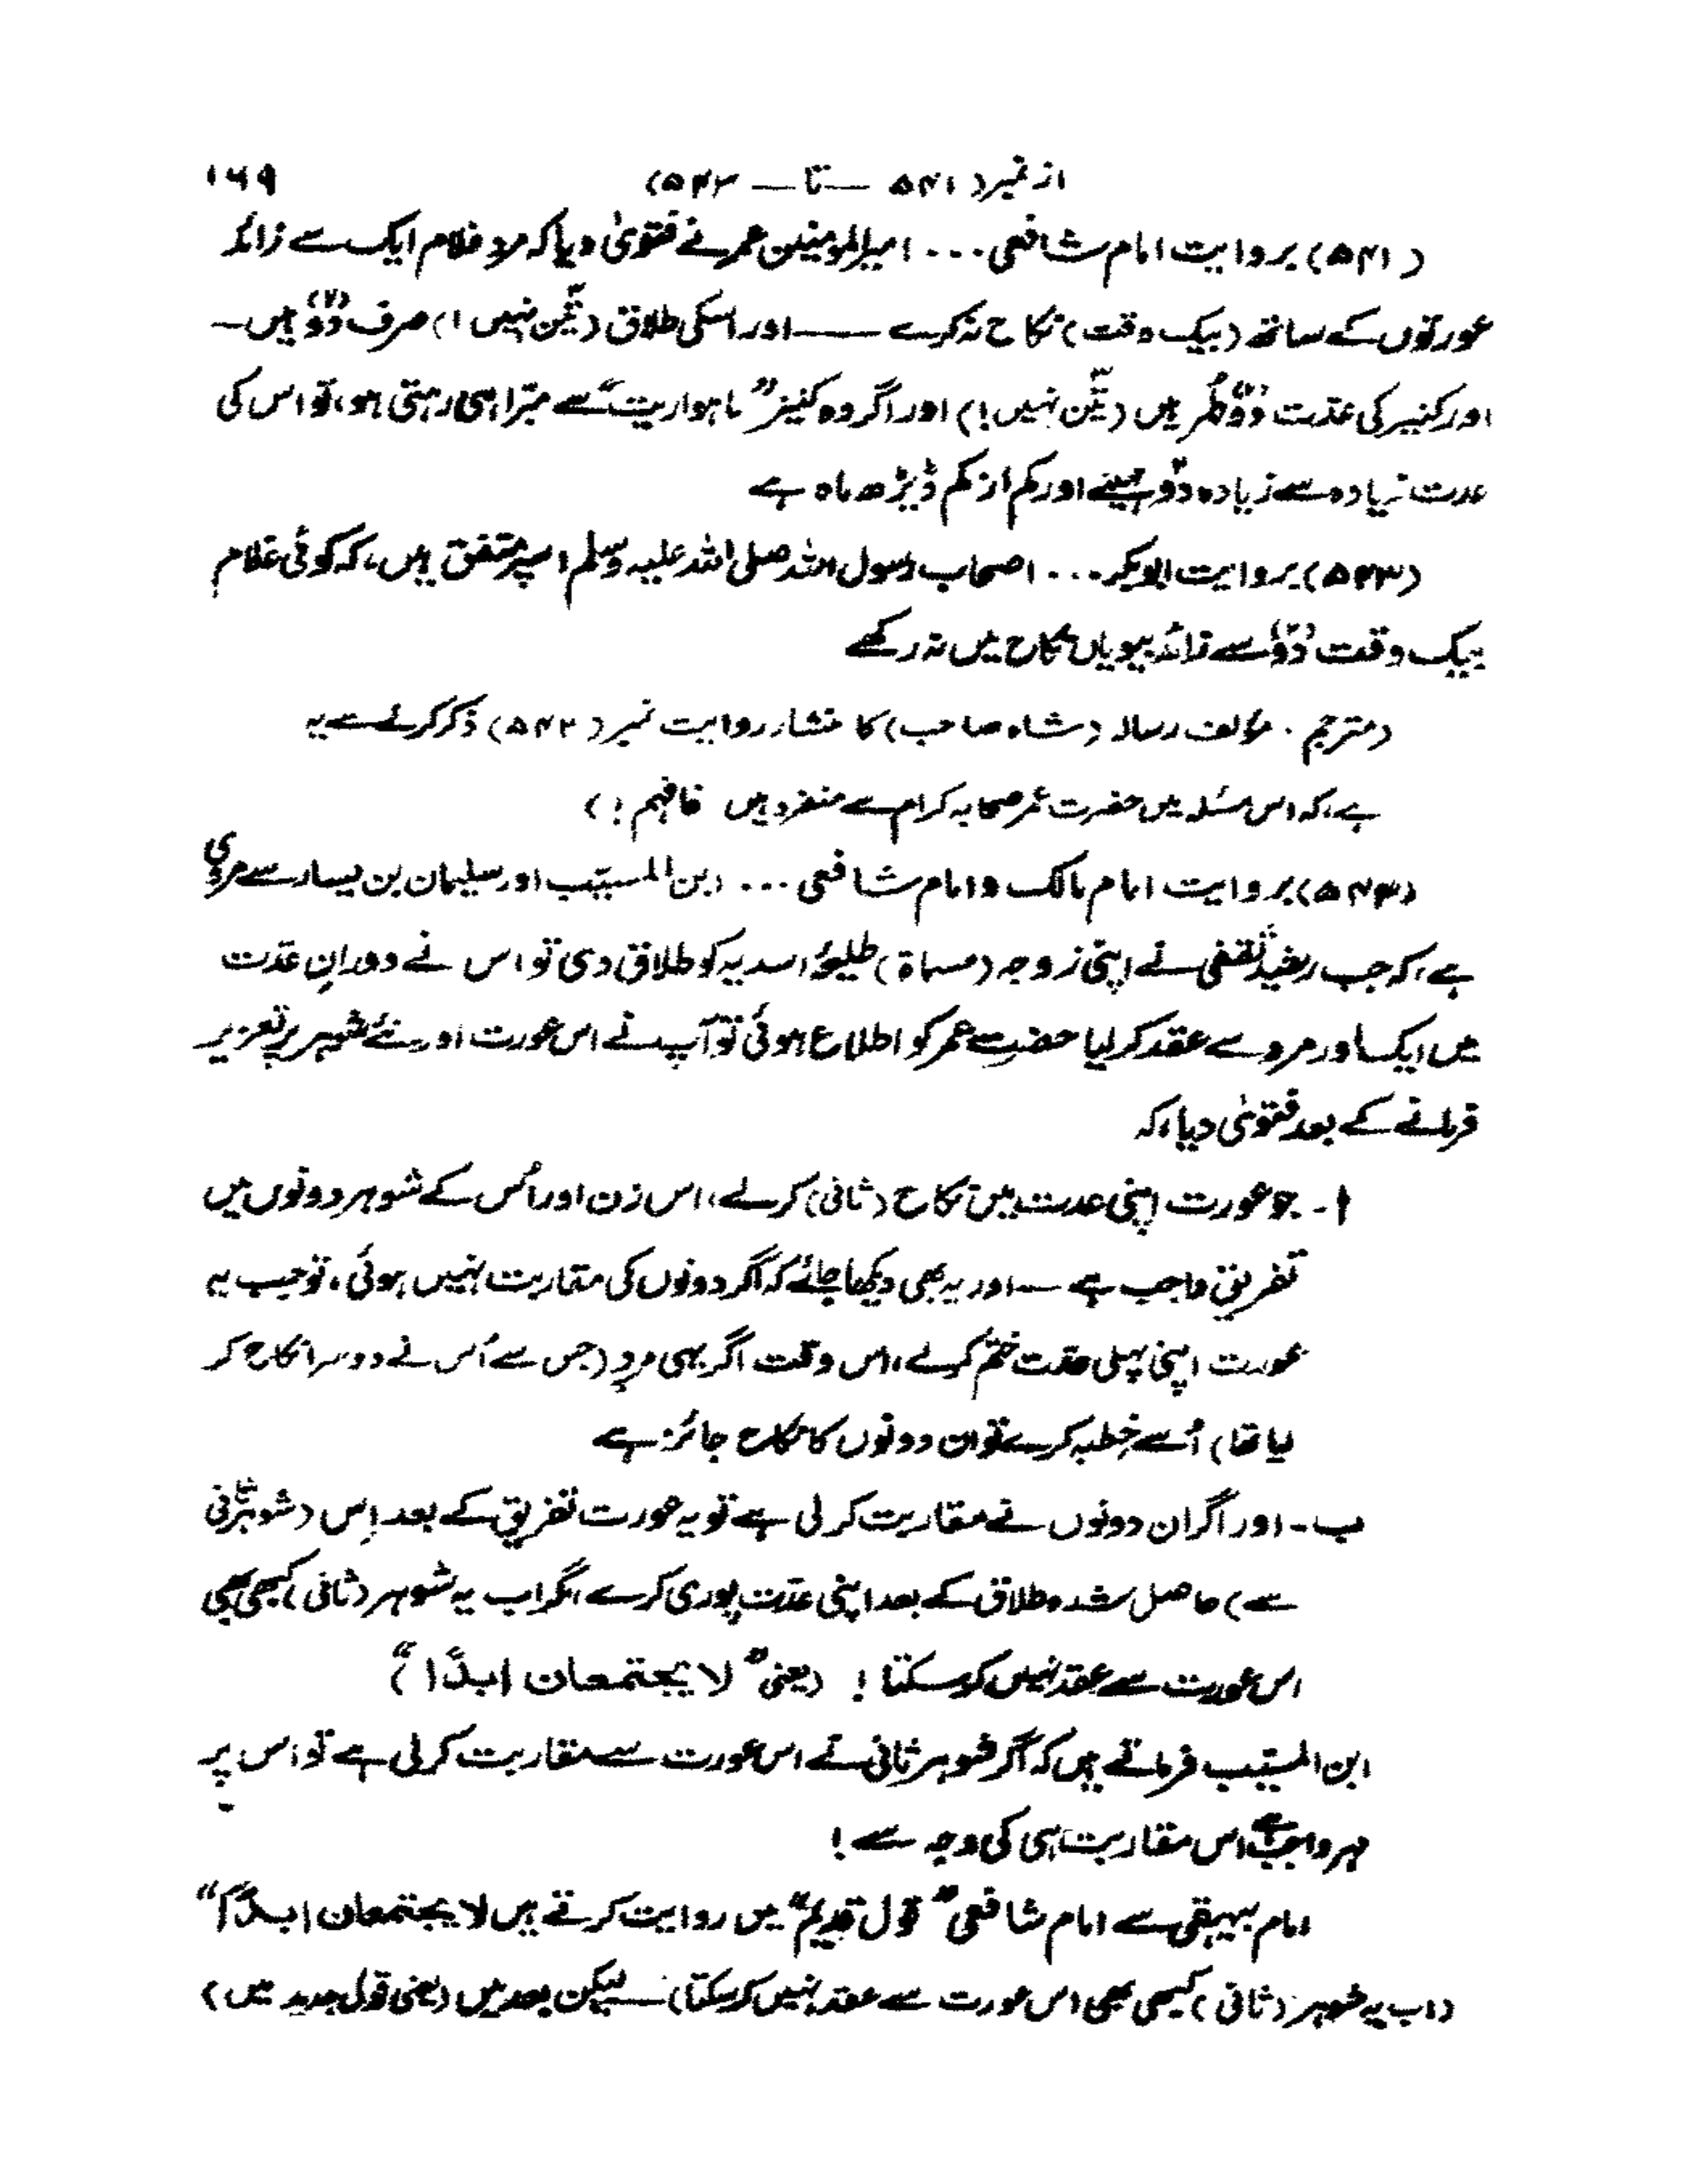 از نمبر (۵۴۱ — تا — ۵۴۳) ۱۶۹
(۵۴۱) بروایت امام شافعی ... امیرالمومنین عمر نے فتویٰ دیا کہ مرد غلام ایک سے زائد
عورتوں کے ساتھ (بیک وقت) نکاح نہ کرے —— اور اسکی طلاق (تین نہیں!) صرف دو (۲) ہیں—
اور کنیز کی عدّت دو طُہر ہیں (تین نہیں!) اور اگر وہ کنیز "ماہواریت" سے مبرّا ہی رہتی ہو، تو اس کی
عدت زیادہ سے زیادہ دو مہینے اور کم از کم ڈیڑھ ماہ ہے
(۵۴۳) بروایت ابوبکر ... اصحاب رسول اللہ صلی اللہ علیہ وسلم اسپر متفق ہیں، کہ کوئی غلام
بیک وقت دو سے زائد بیویاں نکاح میں نہ رکھے
(مترجم . مؤلف رسالہ (شاہ صاحب) کا منشار روایت نمبر (۵۴۲) ذکر کرنے سے یہ
ہے، کہ اس مسئلہ میں حضرت عمر صحابہ کرام سے منفرد ہیں فافہم!)
(۵۴۳) بروایت امام مالک و امام شافعی ... ابن المسیّب اور سلیمان بن یسار سے مروی
ہے، کہ جب رشید ثقفی نے اپنی زوجہ (مسماۃ) طلیحہ اسدیہ کو طلاق دی تو اس نے دورانِ عدّت
میں ایک اور مرد سے عقد کر لیا حضرت عمر کو اطلاع ہوئی تو آپ نے اس عورت اور نئے شوہر پر تعزیر
فرمانے کے بعد فتویٰ دیا، کہ
ا - جو عورت اپنی عدت میں نکاح (ثانی) کر لے، اس زن اور اُس کے شوہر دونوں میں
تفریق واجب ہے — اور یہ بھی دیکھا جائے کہ اگر دونوں کی مقاربت نہیں ہوئی، تو جب یہ
عورت اپنی پہلی عدت ختم کرلے، اس وقت اگر یہی مرد (جس سے اُس نے دوسرا نکاح کر
لیا تھا) اُسے خطبہ کرے تو ان دونوں کا نکاح جائز ہے
ب - اور اگر ان دونوں نے مقاربت کر لی ہے تو یہ عورت تفریق کے بعد اِس (شوہر ثانی
سے) حاصل شدہ طلاق کے بعد اپنی عدّت پوری کرے، مگر اب یہ شوہر (ثانی) کبھی بھی
اس عورت سے عقد نہیں کر سکتا! (یعنی "لا یجتمعان ابدًا")
ابن المسیّب فرماتے ہیں کہ اگر شوہر ثانی نے اس عورت سے مقاربت کر لی ہے تو اس پر
مہر واجب ہے اس مقاربت ہی کی وجہ سے!
امام بیہقی سے امام شافعی "قول قدیم" میں روایت کرتے ہیں لا یجتمعان ابدًا"
(اب یہ شوہر (ثانی) کبھی بھی اس عورت سے عقد نہیں کر سکتا) — لیکن بعد میں (یعنی قول جدید میں)